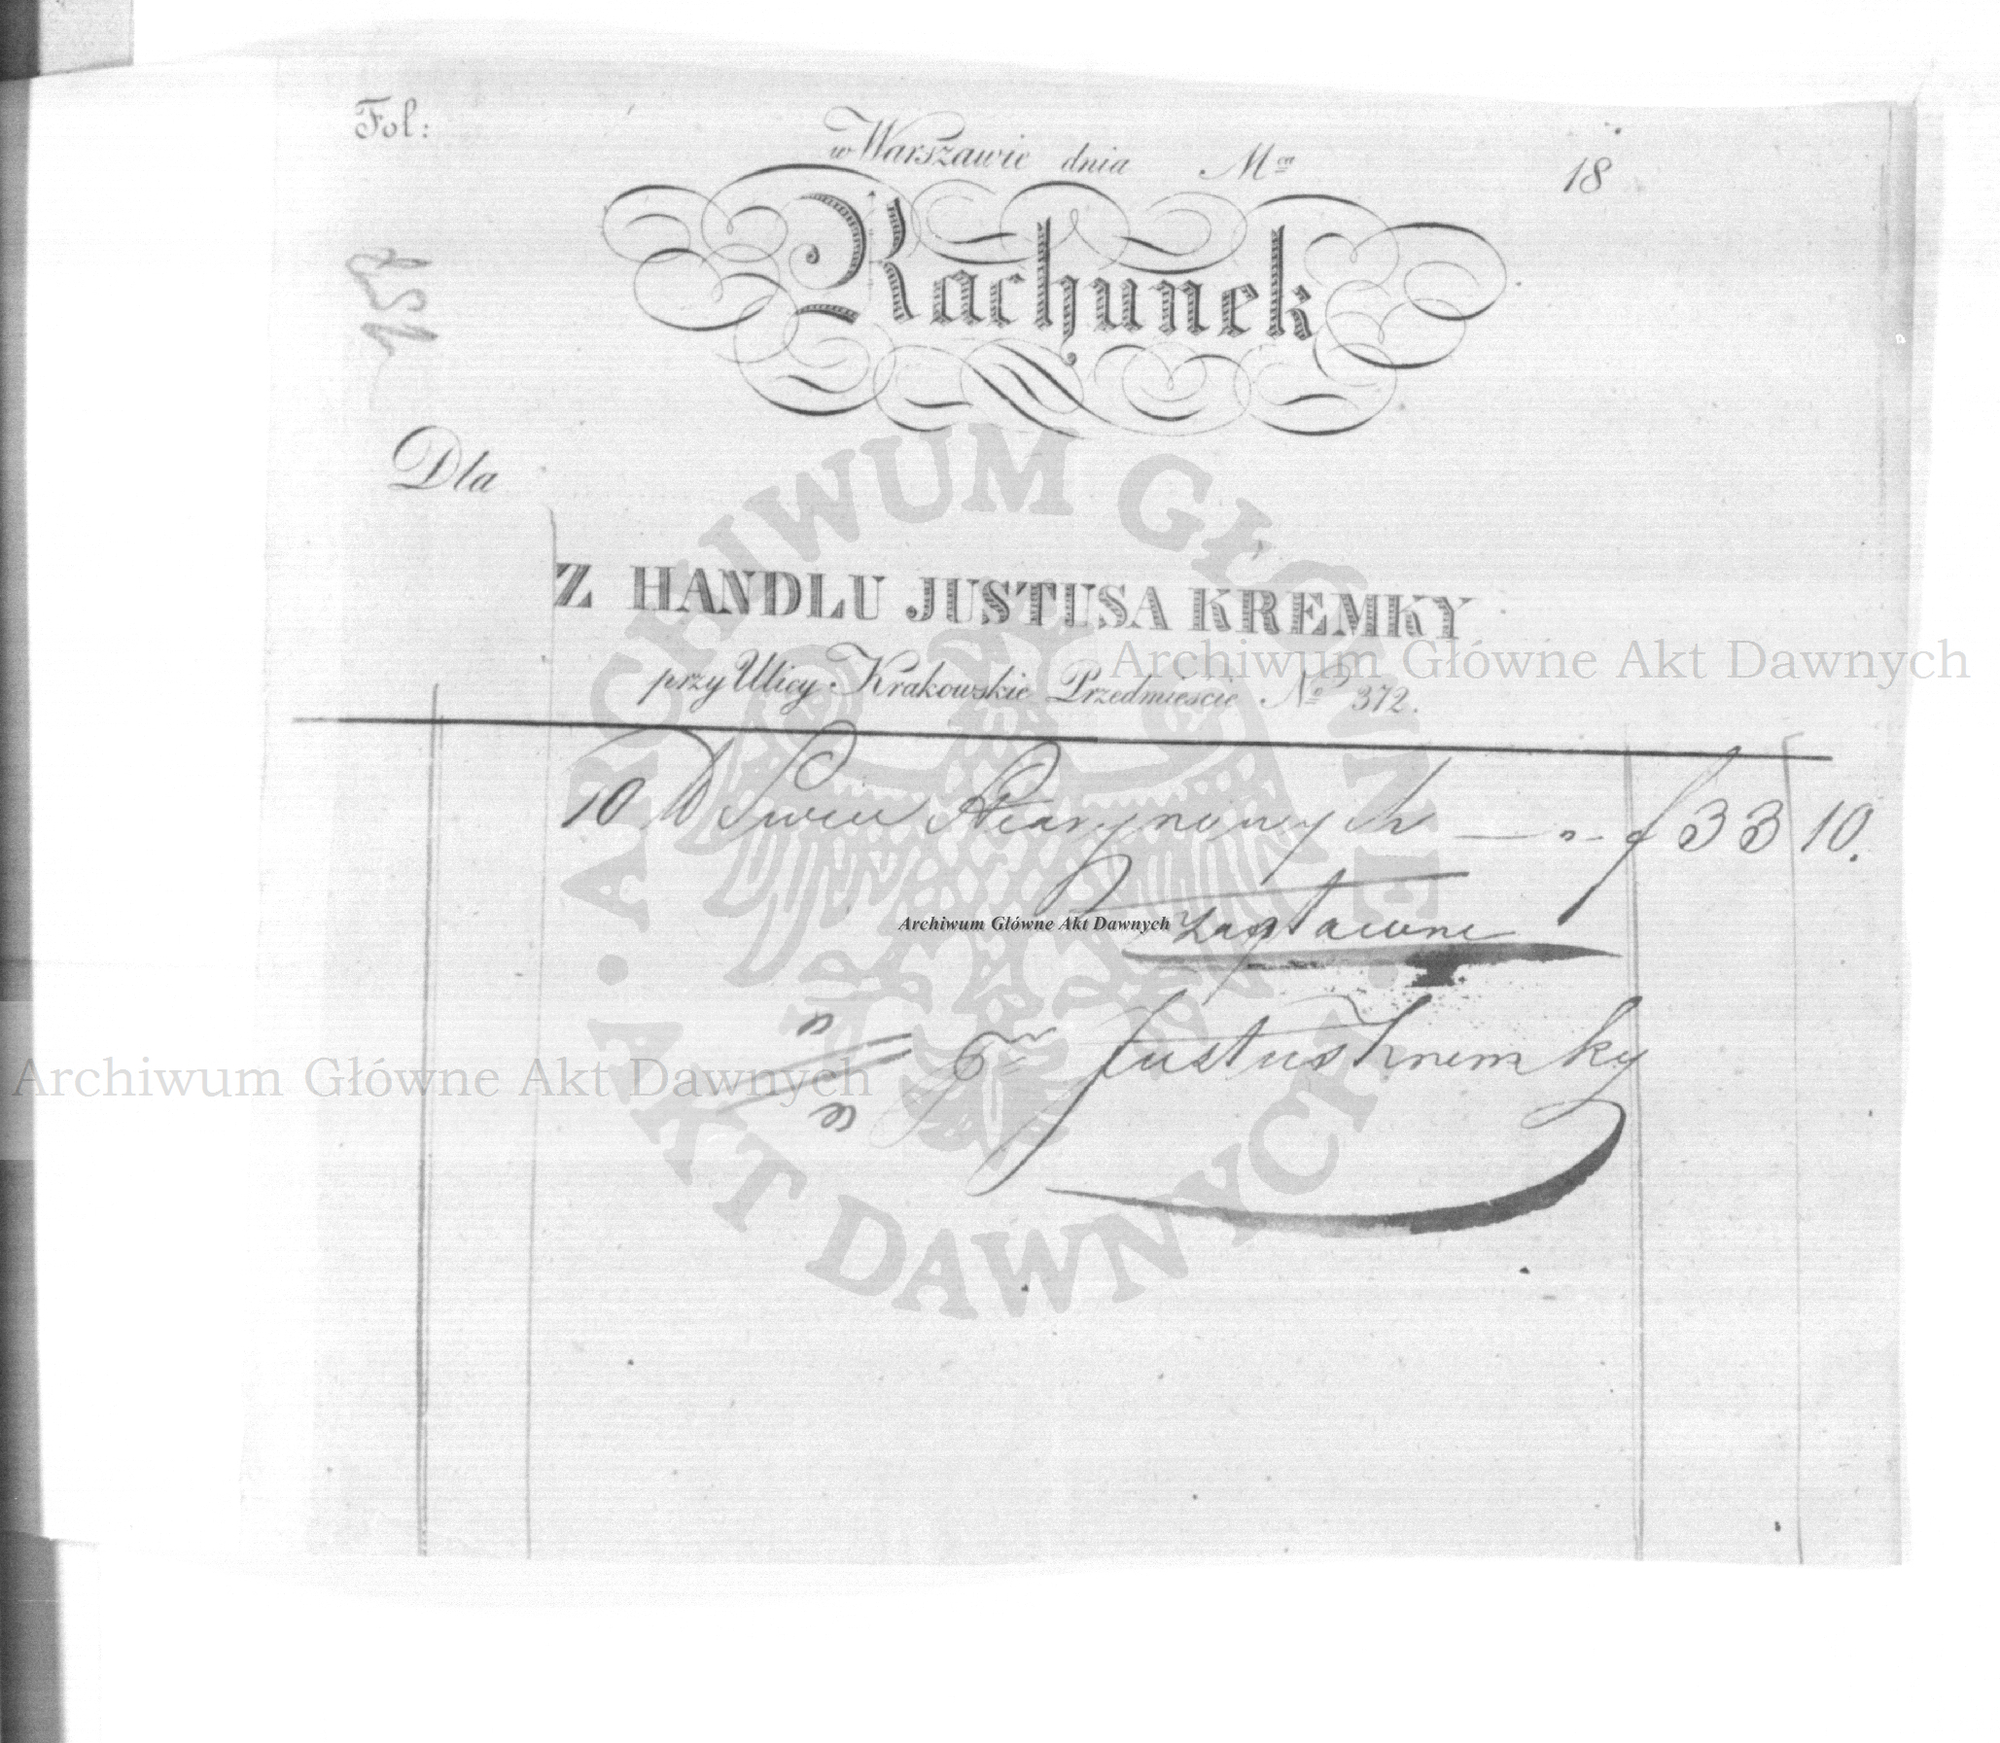 Fol:
w Warszawie dnia M ca 18
Rachunek
257
Dla
Z HANDLU JUSTUSA KREMKY
przy Ulicy Krakowskie Przedmieście No 372.
10 ℔ Swiec Stearynowych — „ - f 33 10.
Zapłacone
Justus Kremky
ARCHIWUM GŁÓWNE · AKT DAWNYCH ·
Archiwum Główne Akt Dawnych
Archiwum Główne Akt Dawnych
Archiwum Główne Akt Dawnych